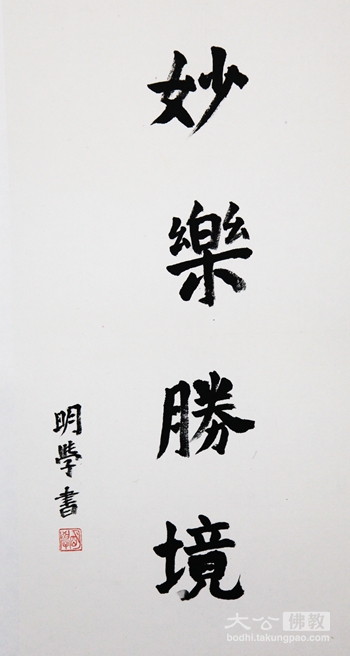 妙樂勝境
明學書
大公佛教
bodhi.takungpao.com